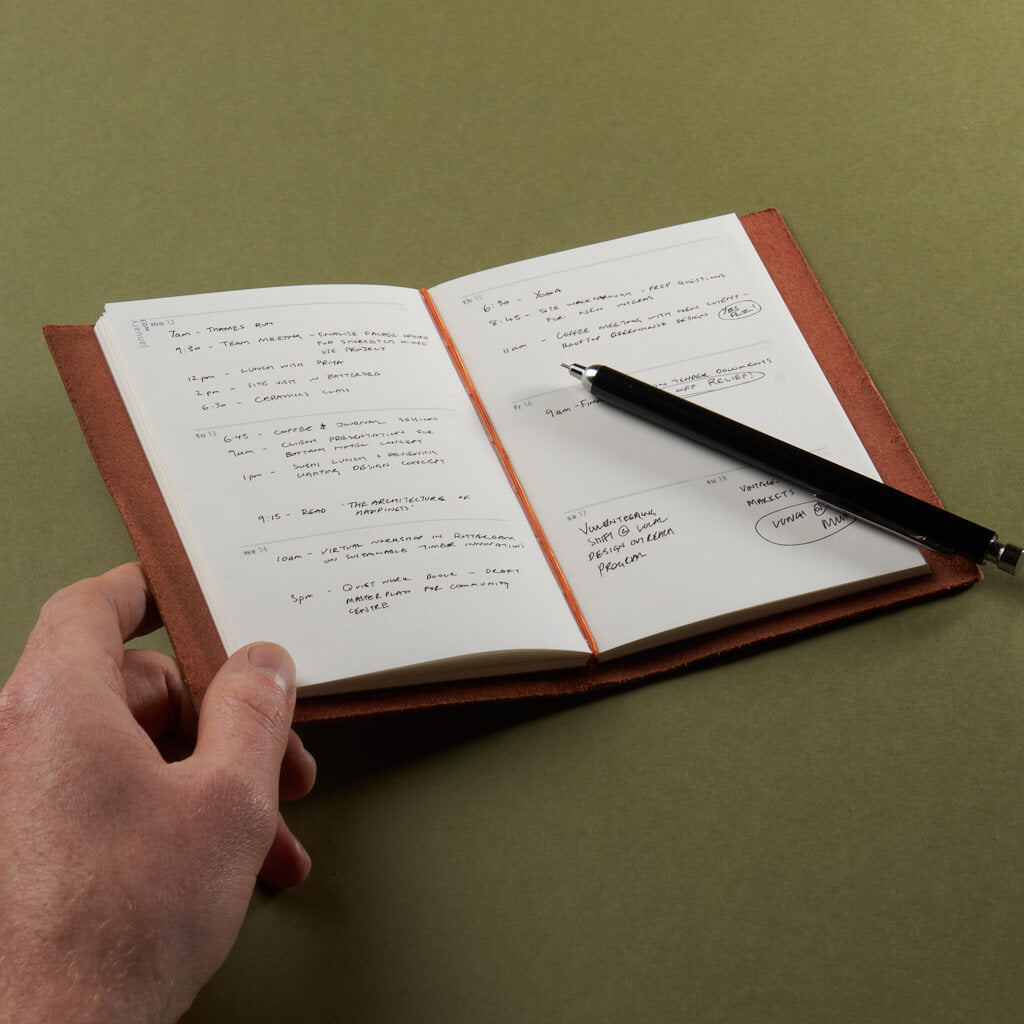 January
mo 12
7am - THAMES RUN
9:30 - TEAM MEETING - FINALISE FACADE OPTIONS
FOR SHOREDITCH MIXED
USE PROJECT
12pm - LUNCH WITH PRIYA
2pm - SITE VISIT IN BATTERSEA
6:30 - CERAMICS CLASS
tu 13
6:45 - COFFEE & JOURNAL SESSION
9am - CLIENT PRESENTATION FOR
HOTEL CONCEPT
1pm - SUSHI LUNCH + REVIEWING
LIGHTING DESIGN CONCEPT
9:15 - READ 'THE ARCHITECTURE OF
HAPPINESS'
we 14
10am - VIRTUAL WORKSHOP IN ROTTERDAM
ON SUSTAINABLE TIMBER INNOVATION
3pm - QUIET WORK BLOCK - DRAFT
MASTERPLAN FOR COMMUNITY
CENTRE
th 15
6:30 - YOGA
8:45 - SITE WALKTHROUGH - PREP QUESTIONS
FOR NEW INTERNS
11am - COFFEE MEETING WITH NEW CLIENT -
ROOFTOP GREENHOUSE DESIGN
YES PLZ!
fr 16
9am - TENDER DOCUMENTS
OFF RELIEF!
sa 17
VULENTEERING
SHIFT @ LOCAL
DESIGN OUTREACH
PROGRAM
su 18
MARKETS
LUNCH @